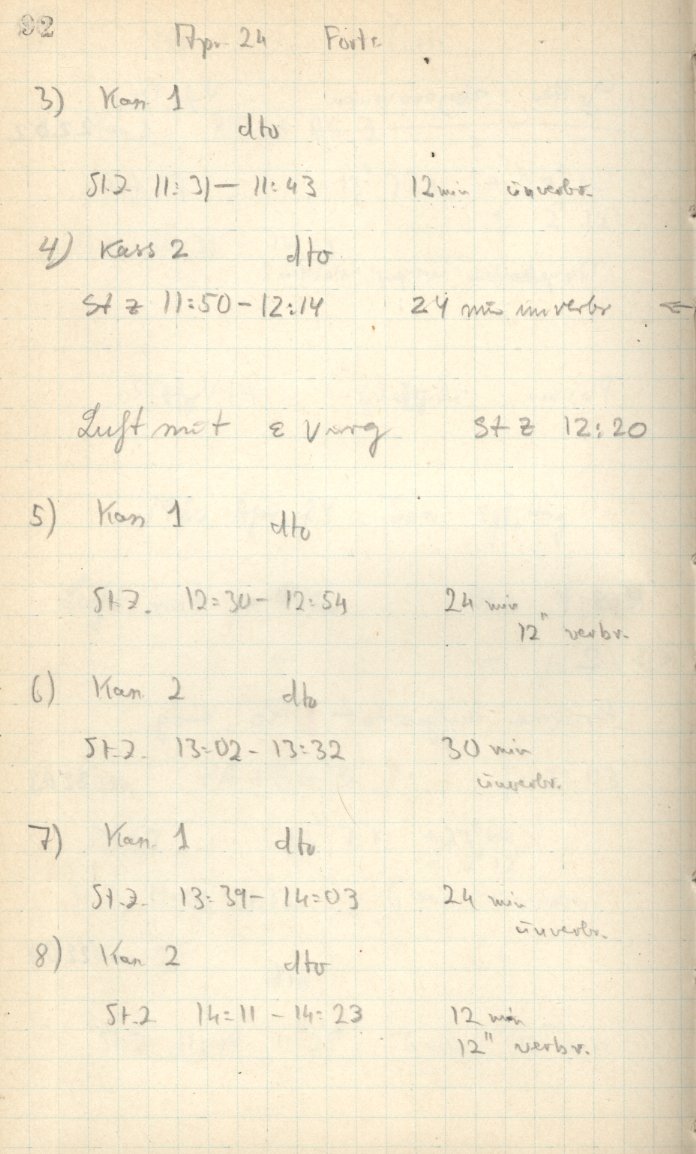 92
Apr. 24 Forts.
3) Kass 1
dto
St.Z. 11:31 — 11:43 12 min unverbr.
4) Kass 2 dto
St Z 11:50 – 12:14 24 min unverbr
Luft mit ε St Z 12:20
5) Kass 1 dto
St.Z. 12:30 – 12:54 24 min
12" verbr.
6) Kass 2 dto
St.Z. 13:02 – 13:32 30 min
unverbr.
7) Kass 1 dto
St.Z. 13:39 – 14:03 24 min
unverbr.
8) Kass 2 dto
St.Z 14:11 – 14:23 12 min
12" verbr.